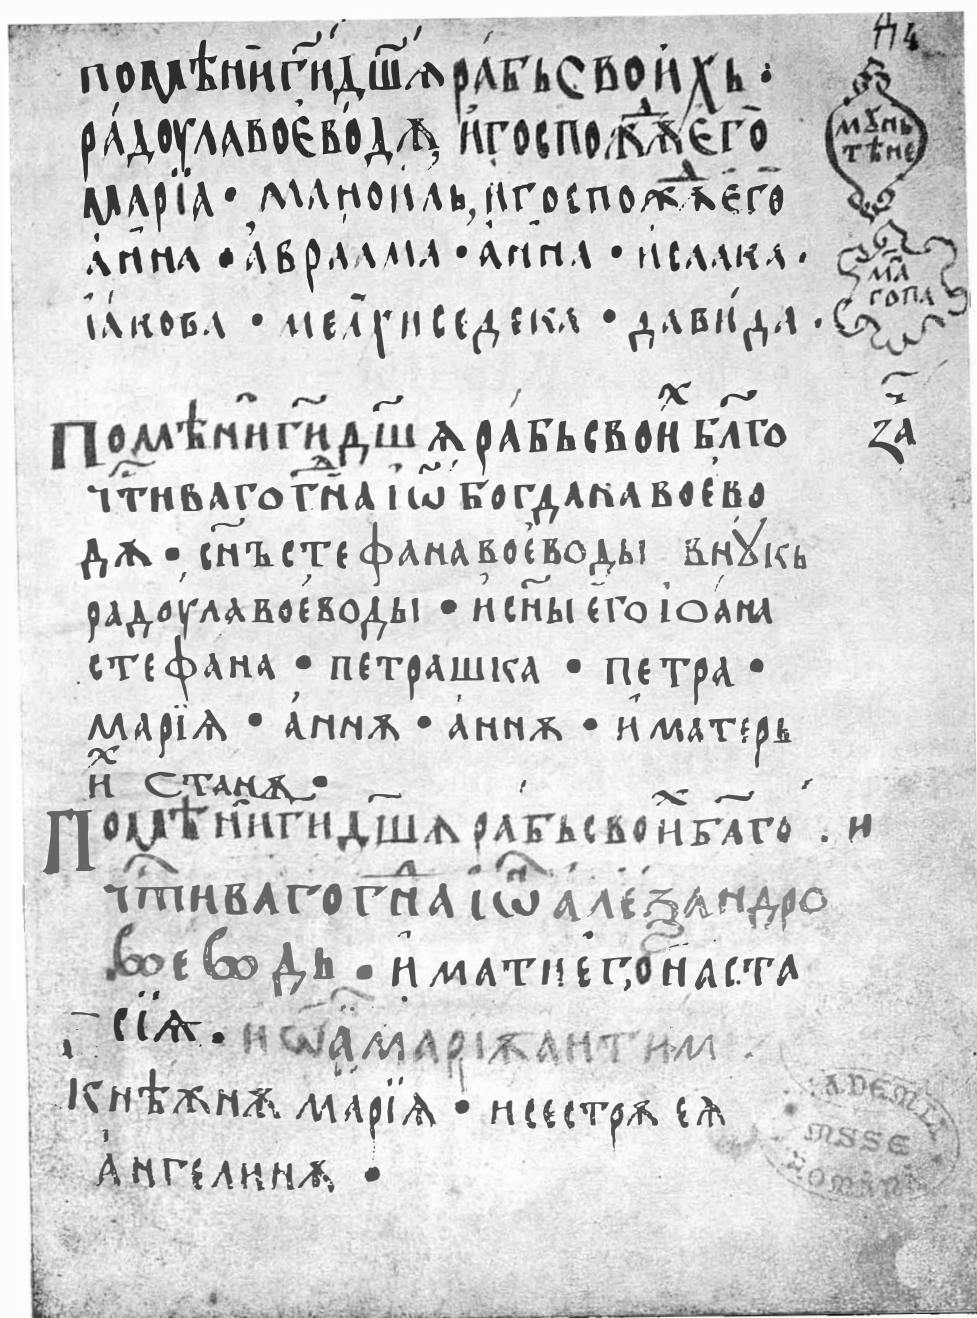 помѣни г҃и дш҃ѧ рабь своихь ·
радоула воеводѫ и госпождѫ его
марїа · манѡиль, и госпождѫ его
анна · авраама · анна · исаака ·
іакова · мелхиседека · давида ·
мꙋнь
тѣне
мл҃
гопа
Помѣни г҃и дш҃ѧ рабь своих бл҃го
чт҃иваго гд҃на іѡ҃ богдана воево
дѫ · сн҃ь стефана воеводы внꙋкь
радоула воеводы · и сн҃ы его іоана
стефана · петрашка · петра ·
марїѧ · аннѫ · аннѫ · и матерь
их станѫ ·
за҃
Помѣни г҃и дш҃ѧ рабь своих бл҃го · и
чт҃иваго гд҃на іѡ҃ алеѯандро
воеводь · и мати его наста
сїѫ · и марїѫ антим
Кнѣжнѫ марїѧ · и сестрѫ еѧ
ангелинѫ ·